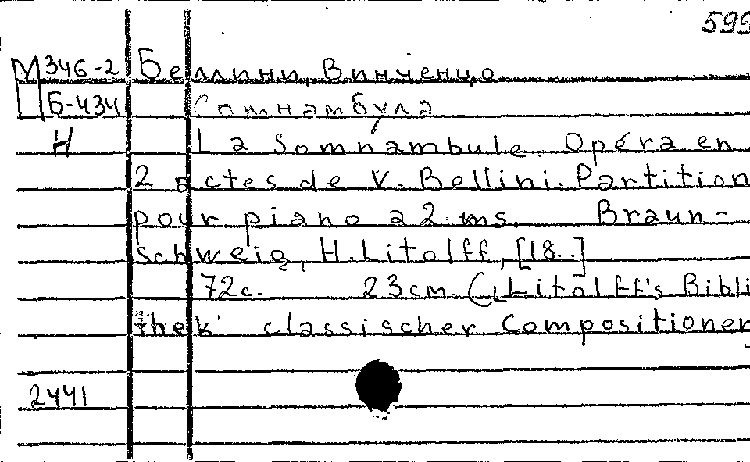 599
М 346-2 Беллини, Винченцо
Б-434 Сомнамбула
Н La Somnambule. Opéra en
2 actes de V. Bellini. Partition
pour piano a 2 ms. Braun-
schweig, H. Litolff, [18..]
72с. 23 cm (Litolff's Bibli
thek classischer Compositionen
2441